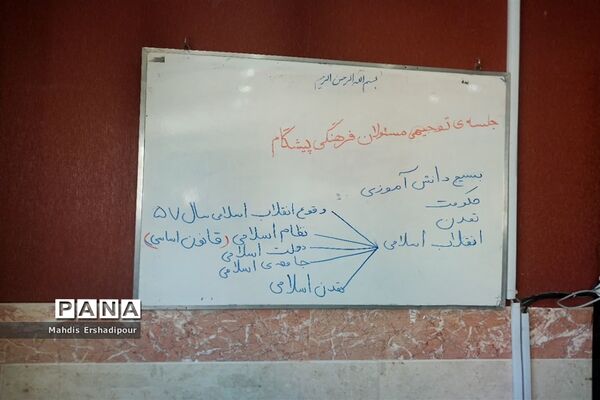 بسم الله الرحمن الرحیم
جلسه ی توجیهی مسئولان فرهنگی پیشگام
بسیج دانش آموزی
حکومت
تمدن
انقلاب اسلامی
وقوع انقلاب اسلامی سال ۵۷
نظام اسلامی (قانون اساسی)
دولت اسلامی
جامعه ی اسلامی
تمدن اسلامی
PANA
Mahdis Ershadipour